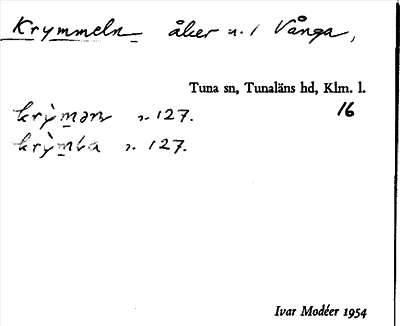 Krymmeln åker n. 1 Vånga,
Tuna sn, Tunaläns hd, Klm. l.
16
krỳmən n. 127.
krỳmba n. 127.
Ivar Modéer 1954